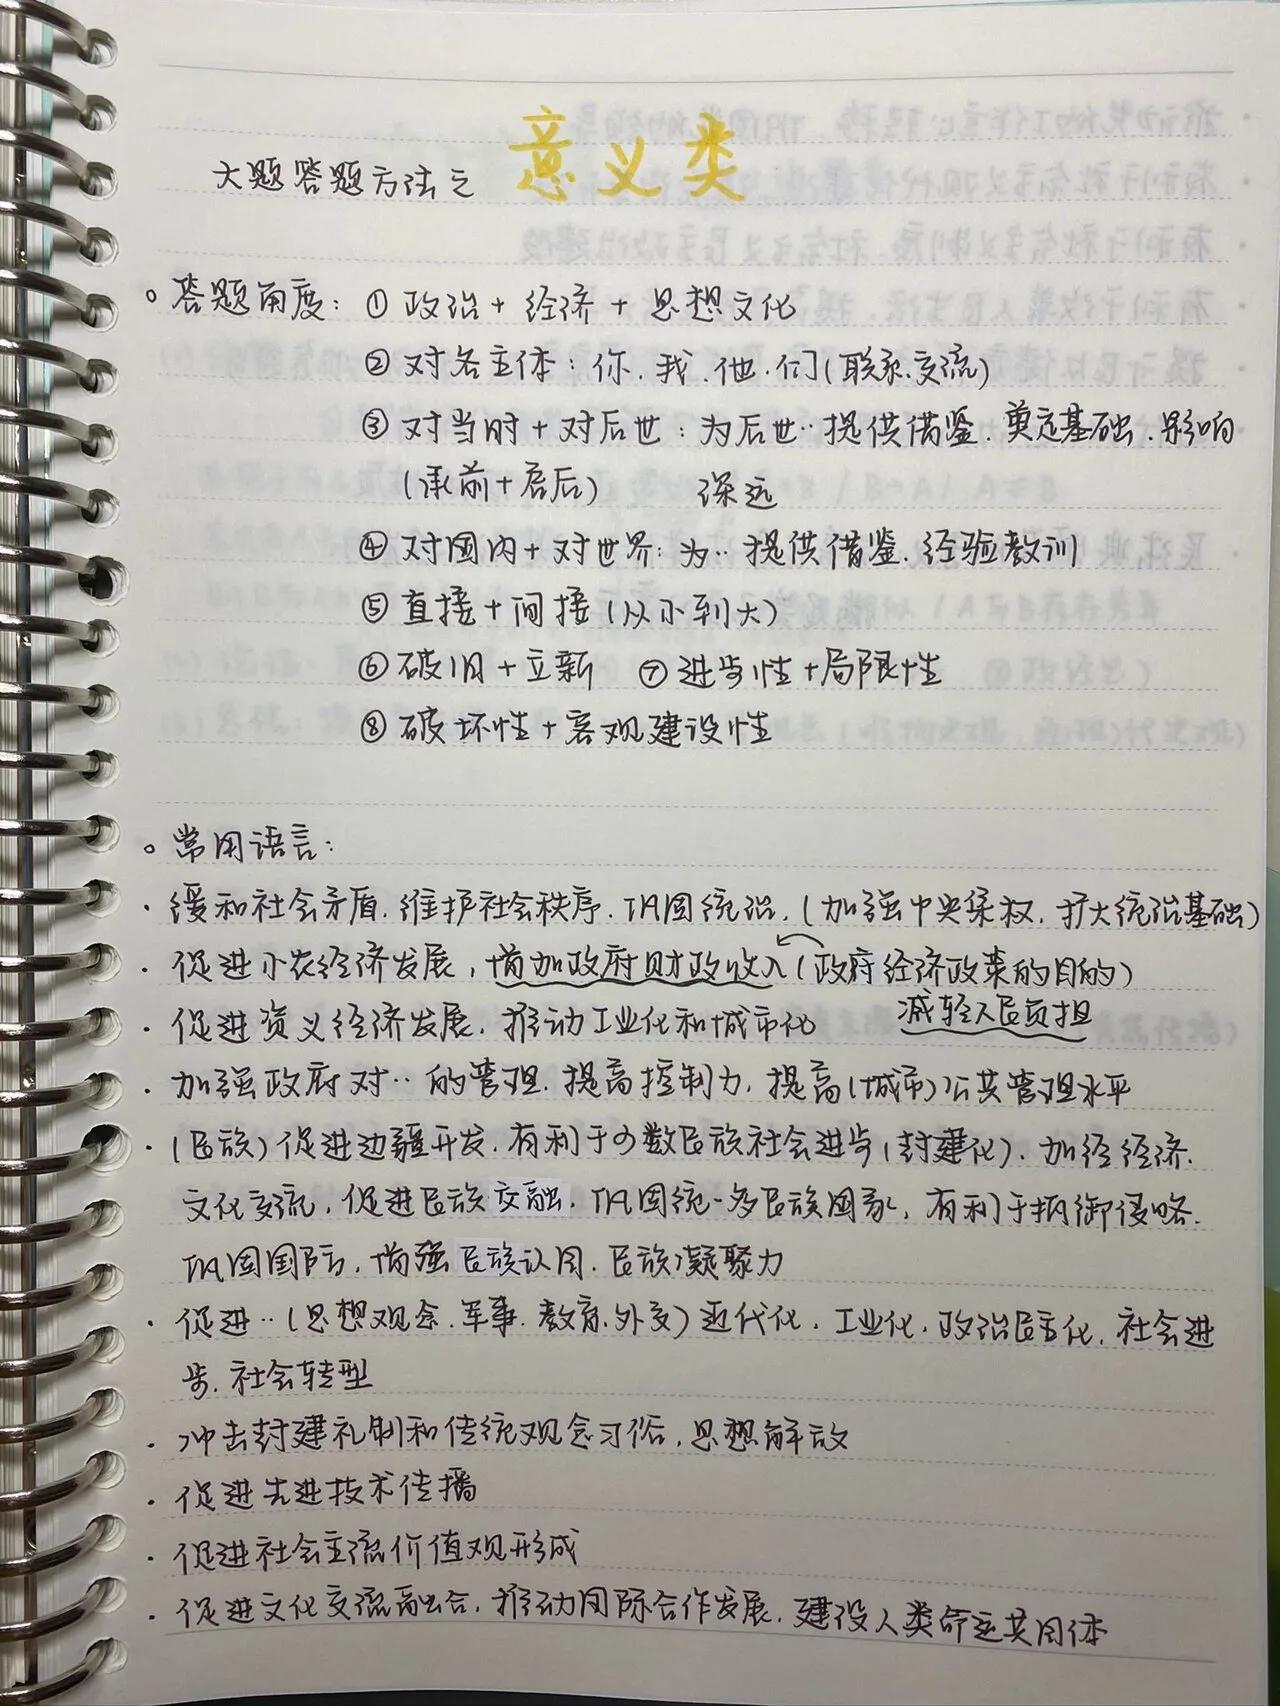 大题答题方法之 意义类
。答题角度：①政治+经济+思想文化
②对各主体：你.我.他.们(联系.交流)
③对当时+对后世：为后世··提供借鉴.奠定基础.影响
(承前+启后) 深远
④对国内+对世界：为··提供借鉴.经验教训
⑤直接+间接(从小到大)
⑥破旧+立新 ⑦进步性+局限性
⑧破坏性+客观建设性
。常用语言：
·缓和社会矛盾.维护社会秩序.巩固统治.(加强中央集权.扩大统治基础)
·促进小农经济发展，增加政府财政收入(政府经济政策的目的)
·促进资义经济发展.推动工业化和城市化 减轻人民负担
·加强政府对··的管理.提高控制力.提高(城市)公共管理水平
·(民族)促进边疆开发.有利于少数民族社会进步(封建化).加经经济.
文化交流，促进民族交融.巩固统一多民族国家，有利于抵御侵略.
巩固国防，增强民族认同.民族凝聚力
·促进··(思想观念.军事.教育.外交)近代化.工业化.政治民主化.社会进
步.社会转型
·冲击封建礼制和传统观念习俗.思想解放
·促进先进技术传播
·促进社会主流价值观形成
·促进文化交流融合.推动国际合作发展.建设人类命运共同体